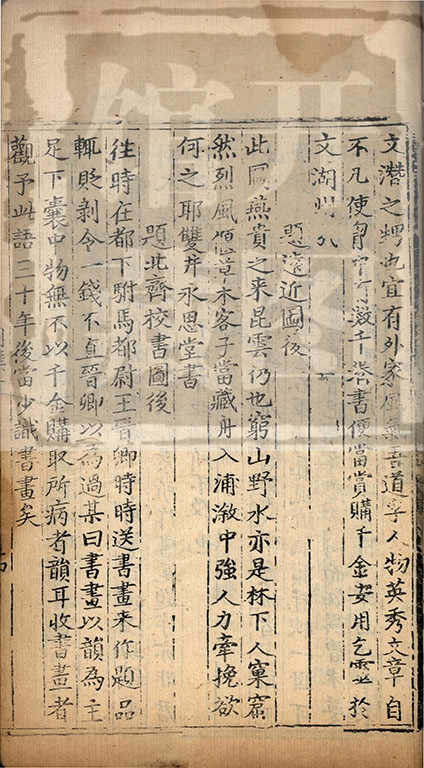 文潛之甥也宜有外家風氣吾道孚人物英秀文章自
不凡使胷中有數千卷書便當賞購千金安用乞靈於
文湖州
題遠近圖後
此圖燕貴之來昆雲仍也窮山野水亦是林下人窠窟
然烈風偃草木客子當藏舟入浦漵中強人力牽挽欲
何之耶雙井永思堂書
題北齊校書圖後
往時在都下駙馬都尉王晉卿時時送書畫來作題品
輒貶剥令一錢不直晉卿以為過某曰書畫以韻為主
足下囊中物無不以千金購取所病者韻耳收書畫者
觀予此語三十年後當少識書畫矣